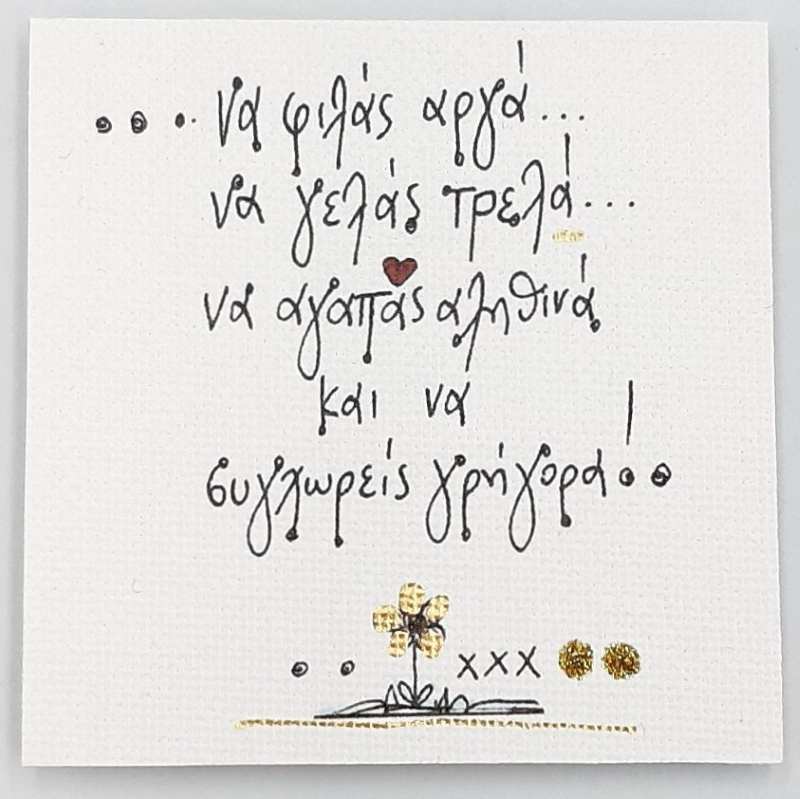 ... να φιλάς αργά...
να γελάς τρελά...
να αγαπάς αληθινά
και να
συγχωρείς γρήγορα!.
xxx